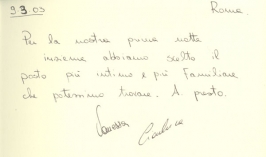 9.3.03 Roma
Per la nostra prima notte
insieme abbiamo scelto il
posto più intimo e più familiare
che potessimo trovare. A presto.